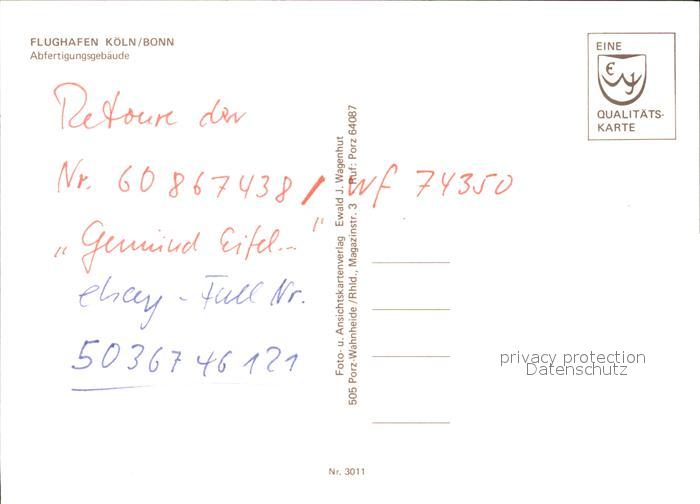 FLUGHAFEN KÖLN/BONN
Abfertigungsgebäude
EINE
QUALITÄTS-
KARTE
Retoure der
Nr. 60867438 / wf 74350
„Gemünd Eifel..."
ebay - Fall Nr.
5036746121
Foto- u. Ansichtskartenverlag Ewald J. Wagenhut
505 Porz-Wahnheide/Rhld., Magazinstr. 3 Ruf: Porz 64087
privacy protection
Datenschutz
Nr. 3011